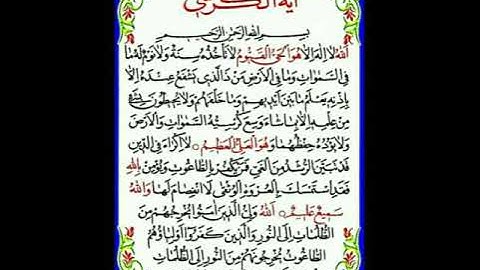 آية الكرسي
بسم الله الرحمن الرحيم
الله لا إله إلا هو الحي القيوم لا تأخذه سنة ولا نوم له ما
في السموات وما في الأرض من ذا الذي يشفع عنده إلا
بإذنه يعلم ما بين أيديهم وما خلفهم ولا يحيطون بشيء
من علمه إلا بما شاء وسع كرسيه السموات والأرض
ولا يؤده حفظهما وهو العلي العظيم لا إكراه في الدين
قد تبين الرشد من الغي فمن يكفر بالطاغوت ويؤمن بالله
فقد استمسك بالعروة الوثقى لا انفصام لها والله
سميع عليم الله ولي الذين آمنوا يخرجهم من
الظلمات إلى النور والذين كفروا أولياؤهم
الطاغوت يخرجونهم من النور إلى الظلمات